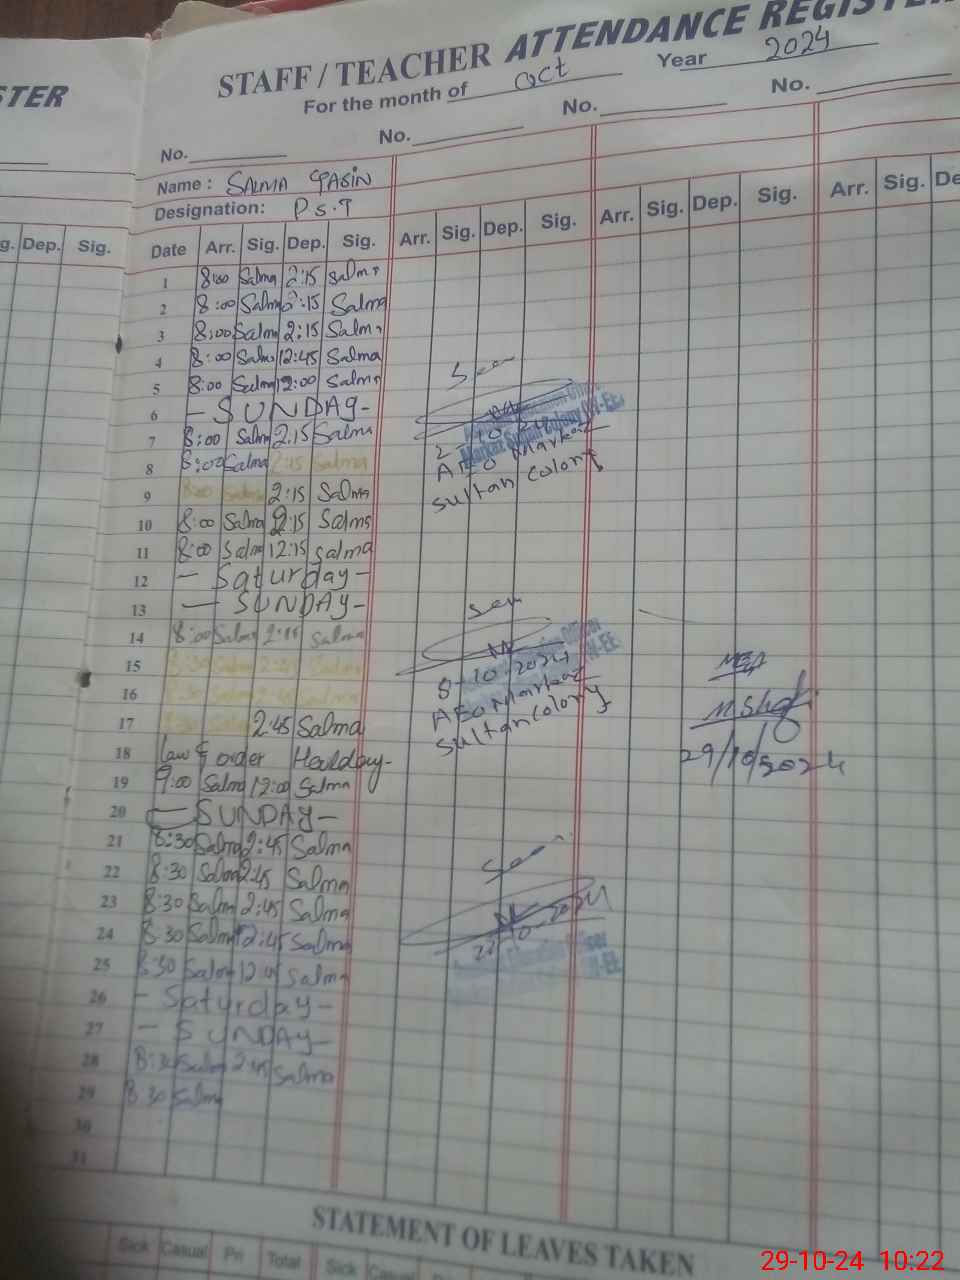 STER
STAFF / TEACHER ATTENDANCE REGISTER
For the month of Oct Year 2024
No. No. No. No.
Name : SALMA YASIN
Designation: P.S.T
g. Dep. Sig.
Date Arr. Sig. Dep. Sig. Arr. Sig. Dep. Sig. Arr. Sig. Dep. Sig. Arr. Sig. De
1 8:00 Salma 2:15 Salma
2 8:00 Salma 2:15 Salma
3 8:00 Salma 2:15 Salma
4 8:00 Salma 12:45 Salma
5 8:00 Salma 12:00 Salma
6 - SUNDAY -
7 8:00 Salma 2:15 Salma
8 8:00 Salma 2:15 Salma
9 8:00 Salma 2:15 Salma
10 8:00 Salma 2:15 Salma
11 8:00 Salma 12:15 Salma
12 - Saturday -
13 - SUNDAY -
14 8:00 Salma 2:15 Salma
15 8:30 Salma 2:45 Salma
16 8:30 Salma 2:45 Salma
17 8:30 Salma 2:45 Salma
18 Law & order Holiday -
19 9:00 Salma 12:00 Salma
20 - SUNDAY -
21 8:30 Salma 2:45 Salma
22 8:30 Salma 2:45 Salma
23 8:30 Salma 2:45 Salma
24 8:30 Salma 2:45 Salma
25 8:30 Salma Salma
26 - Saturday -
27 - SUNDAY -
28 8:30 Salma 2:45 Salma
29 8:30 Salma
30
31
Seen
AEO Markaz
Sultan Colony
Seen
8-10-2024
AEO Markaz
Sultan Colony
Seen
MEA
M.Shaf
29/10/2024
STATEMENT OF LEAVES TAKEN
Sick Casual Pri Total Sick Casual
29-10-24 10:22